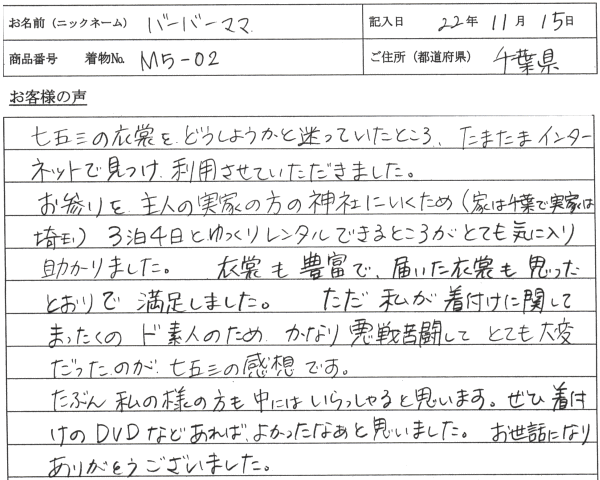 お名前（ニックネーム） バーバーママ 記入日 22年 11月 15日
商品番号 着物No. M5-02 ご住所（都道府県） 千葉県
お客様の声
七五三の衣裳を、どうしようかと迷っていたところ、たまたまインター
ネットで見つけ、利用させていただきました。
お参りを主人の実家の方の神社にいくため（家は千葉で実家は
埼玉）3泊4日とゆっくりレンタルできるところがとても気に入り
助かりました。 衣裳も豊富で、届いた衣裳も思った
とおりで満足しました。 ただ私が着付けに関して
まったくのド素人のため、かなり悪戦苦闘してとても大変
だったのが、七五三の感想です。
たぶん私の様の方も中にはいらっしゃると思います。ぜひ着付
けのDVDなどあれば、よかったなぁと思いました。お世話になり
ありがとうございました。